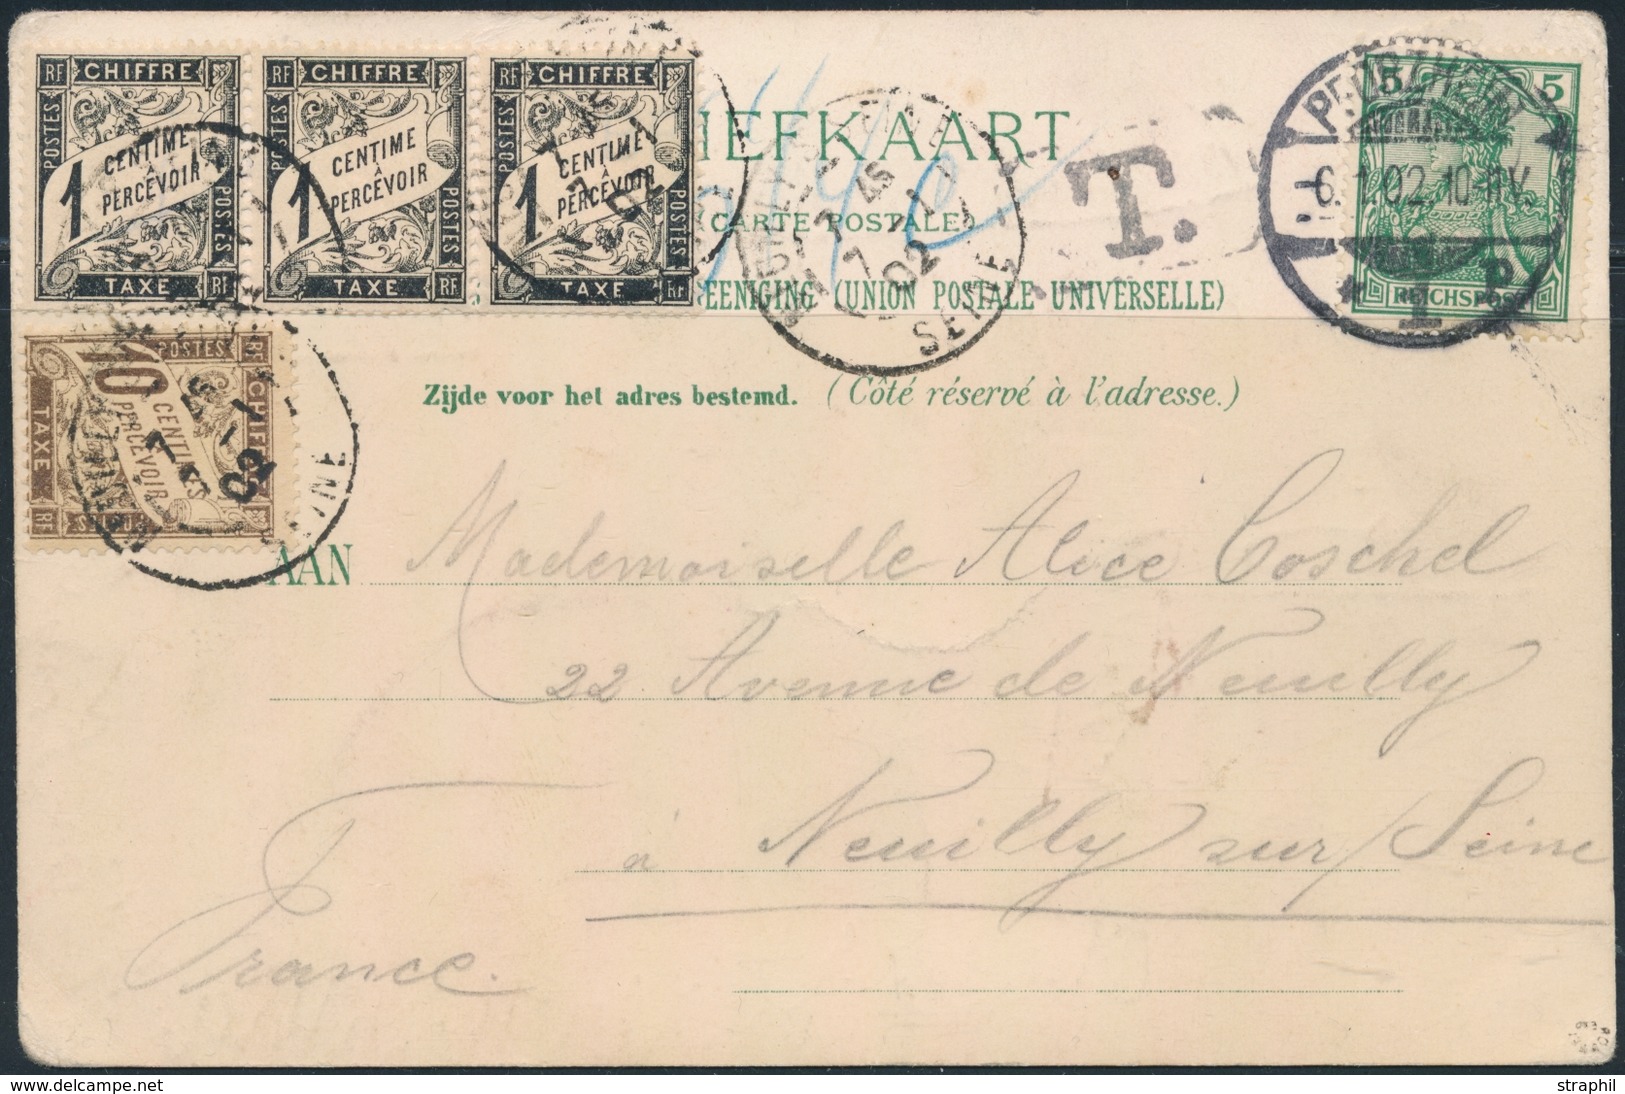 RF CHIFFRE POSTES POSTES 1 CENTIME À PERCEVOIR TAXE RF
RF CHIFFRE POSTES POSTES 1 CENTIME À PERCEVOIR TAXE RF
RF CHIFFRE POSTES POSTES 1 CENTIME À PERCEVOIR TAXE RF
IEFKAART
(CARTE POSTALE)
EENIGING (UNION POSTALE UNIVERSELLE)
T.
7 45
7 -1
02
SEINE
PFORZHEIM
6.1.02.10-11V.
1 P
5 5
REICHSPOST
RF CHIFFRE POSTES POSTES 10 CENTIMES À PERCEVOIR TAXE RF
7 45
7 -1
02
Zijde voor het adres bestemd. (Côté réservé à l'adresse.)
AAN Mademoiselle Alice Coschel
22 Avenue de Neuilly
à Neuilly sur/Seine
France.
www.delcampe.net
straphil